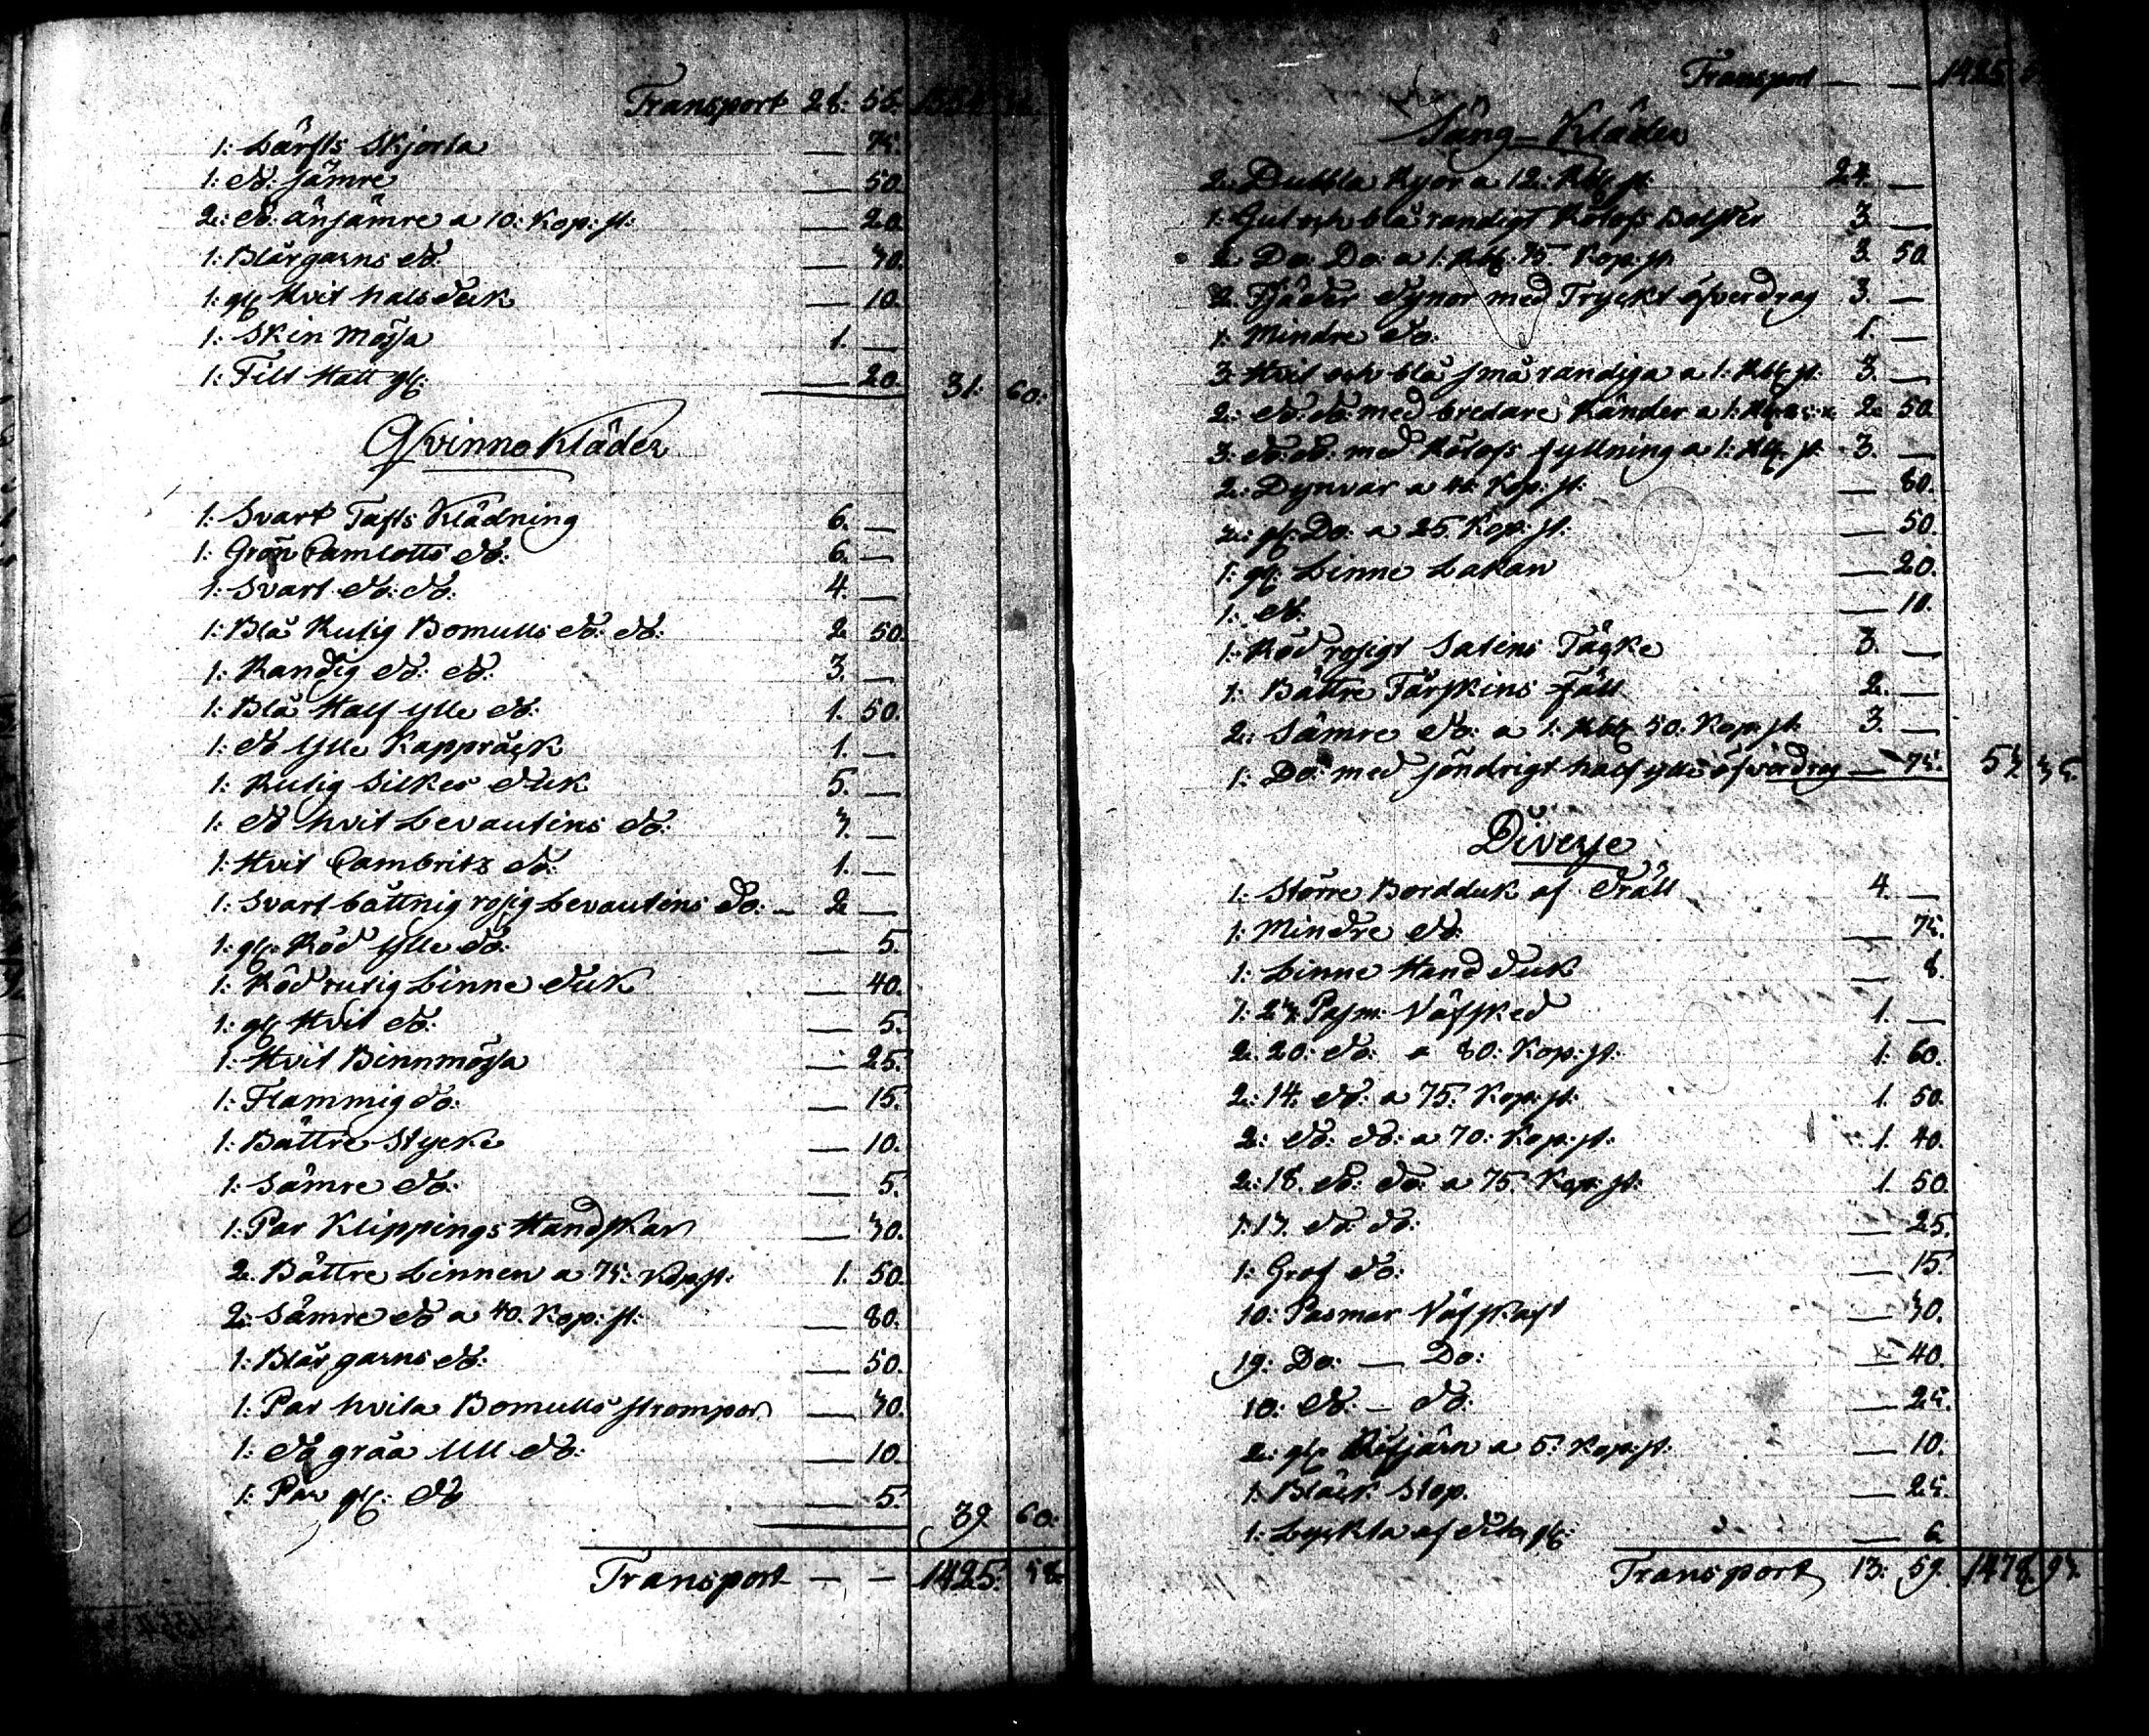 Transport 28: 55. 1354
1: Lärfts Skjorta — 75.
1: do: sämre — 50.
2: do: änsämre a 10: Kop: st: — 20.
1: Blårgarns do: — 70.
1: gl: Hvit halsduk — 10.
1: Skin Mössa 1. —
1: Filt Hatt gl: — 20. 31: 60:
Qvinno Kläder
1: Svart Tafts Klädning 6. —
1: Grön Camlotts do: 6. —
1: Svart do: do: 4. —
1: Blå Rutig Bomulls do: do: 2. 50.
1: Randig do: do: 3. —
1: Blå Half ylle do: 1. 50.
1: do Ylle Kappräck 1. —
1: Rutig Silkes duk 5. —
1: do hvit Levantins do: 7. —
1: Hvit Cambritz do: 1. —
1: Svart båttnig rosig Levantins do: — 2. —
1: gl: Röd Ylle do: — 5.
1: Röd rutig Linne duk — 40.
1: gl: Hvit do: — 5.
1: Hvit Binnmössa — 25.
1: Flammig do: — 15.
1: Bättre Stycke — 10.
1: Sämre do: — 5.
1: Par Klippings Handskar — 70.
2. Bättre Linnen a 75: Kop: st: 1. 50.
2: Sämre do a 40. Kop: st: — 80.
1: Blår garns do: — 50.
1: Par hvita Bomulls strompor — 70.
1: do gråa Ull do: — 10.
1: Par gl: do — 5. 39. 60:
Transport — — 1425. 58.
Transport — — 1425.
Säng-Kläder
2: Dubbla Kyor a 12: Rbl st: 24. —
1: Gul och blå randigt Rölofs Bolster 3. —
2. Do: Do: a 1: Rbl: 75 Kop: st: 3. 50.
2. Fjäder dynor med Tryckt öfverdrag 3. —
1: Mindre do: 1. —
3: Hvit och blå små randiga a 1: Rbl st: 3. —
2: do: do: med bredare Ränder a 1: 2. 50.
3: do: do: med Rölofs fyllning a 1: Rbl: st: 3. —
2: Dynvar a 40. Kop: st: — 80.
2: gl: Do: a 25. Kop: st: — 50.
1: gl: Linne Lakan — 20.
1: do: — 10.
1: Röd rosigt Satins Täcke 3. —
1: Bättre Fårskins Fäll 2. —
2: Sämre do: a 1: Rbl 50. Kop: st: 3. —
1: Do: med söndrigt half ylle öfverdrag — 75. 57. 35.
Diverse
1: Större Bordduk af Dräll 4. —
1: Mindre do: — 75.
1: Linne Handduk — 8.
1: 27. Pasm: Väfsked 1. —
2: 20: do: a 80: Kop: st: 1: 60.
2: 14. do: a 75. Kop: st: 1. 50.
2: do: do: a 70: Kop: st: 1. 40.
2: 18. do: do: a 75. Kop: st: 1. 50.
1: 17. do: do: — 25.
1: Grof do: — 15.
10: Pasmar Väfskaft — 70.
19: Do: — Do: — 40.
10: do: — do: — 25.
2: gl: a 5: Kop: st: — 10.
1: Bläck Stop. — 25.
1: Lyckta af gl: — 6.
Transport 13: 59. 1478. 93.